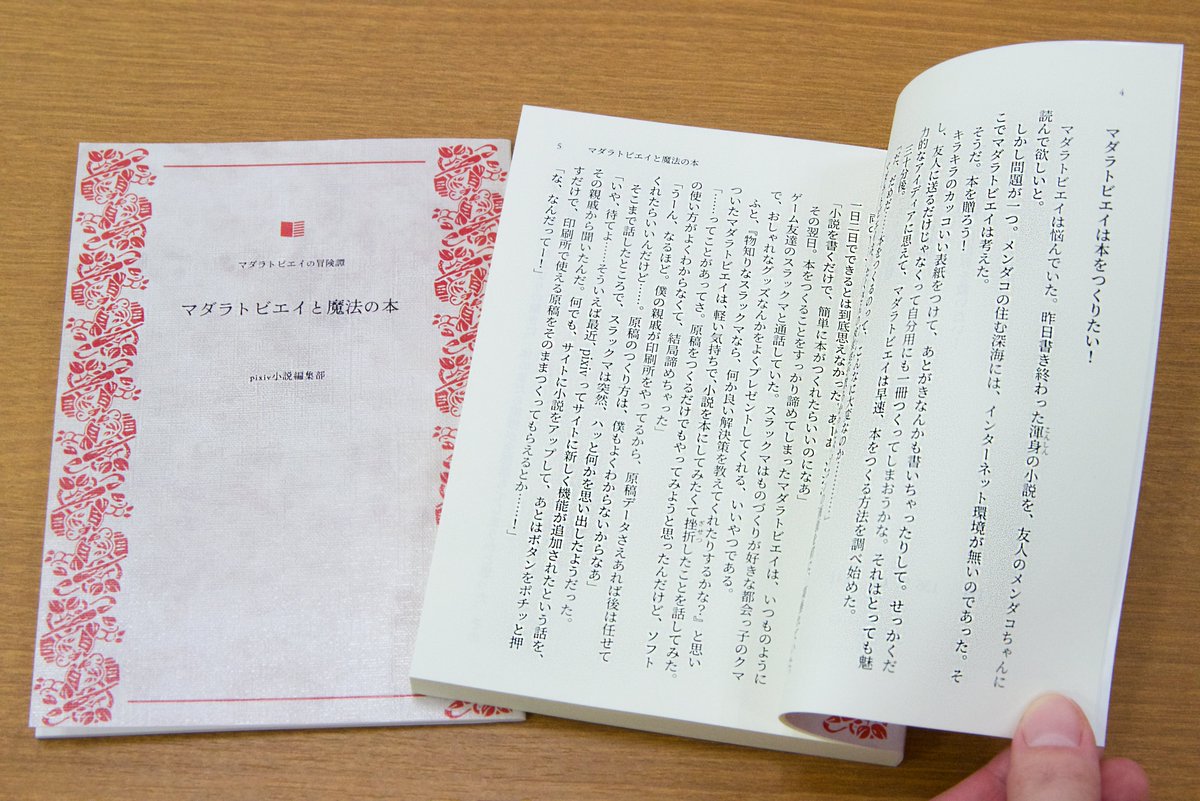 マダラトビエイの冒険譚
マダラトビエイと魔法の本
pixiv小説編集部
4
マダラトビエイは本をつくりたい！
マダラトビエイは悩んでいた。昨日書き終わった渾身の小説を、友人のメンダコちゃんに
こんしん
読んで欲しいと。
しかし問題が一つ。メンダコの住む深海には、インターネット環境が無いのであった。そ
こでマダラトビエイは考えた。
そうだ。本を贈ろう！
キラキラのカッコいい表紙をつけて、あとがきなんかも書いちゃったりして。せっかくだ
し、友人に送るだけじゃなくって自分用にも一冊つくってしまおうかな。それはとっても魅
力的なアイディアに思えて、マダラトビエイは早速、本をつくる方法を調べ始めた。
三十分後。
5
マダラトビエイと魔法の本
一日二日でできるとは到底思えなかった。
「小説を書くだけで、簡単に本がつくれたらいいのになあ」
その翌日。本をつくることをすっかり諦めてしまったマダラトビエイは、いつものように
ゲーム友達のスラックマと通話していた。スラックマはものづくりが好きな都会っ子のクマ
で、おしゃれなグッズなんかをよくプレゼントしてくれる、いいやつである。
ふと、『物知りなスラックマなら、何か良い解決策を教えてくれたりするかな？』と思い
ついたマダラトビエイは、軽い気持ちで小説を本にしてみたくて挫折したことを話してみた。
ざせつ
「……ってことがあってさ。原稿をつくるだけでもやってみようと思ったんだけど、ソフト
の使い方がよくわからなくて、結局諦めちゃった」
「うーん、なるほど。僕の親戚が印刷所をやってるから、原稿データさえあれば後は任せて
くれたらいいんだけど……。原稿のつくり方は、僕もよくわからないからなあ」
そこまで話したところで、スラックマは突然、ハッと何かを思い出したようだった。
「いや、待てよ……そういえば最近、pixivってサイトに新しく機能が追加されたという話を、
その親戚から聞いたんだ。何でも、サイトに小説をアップして、あとはボタンをポチッと押
すだけで、印刷所で使える原稿をそのままつくってもらえるとか……！」
「な、なんだってー！」